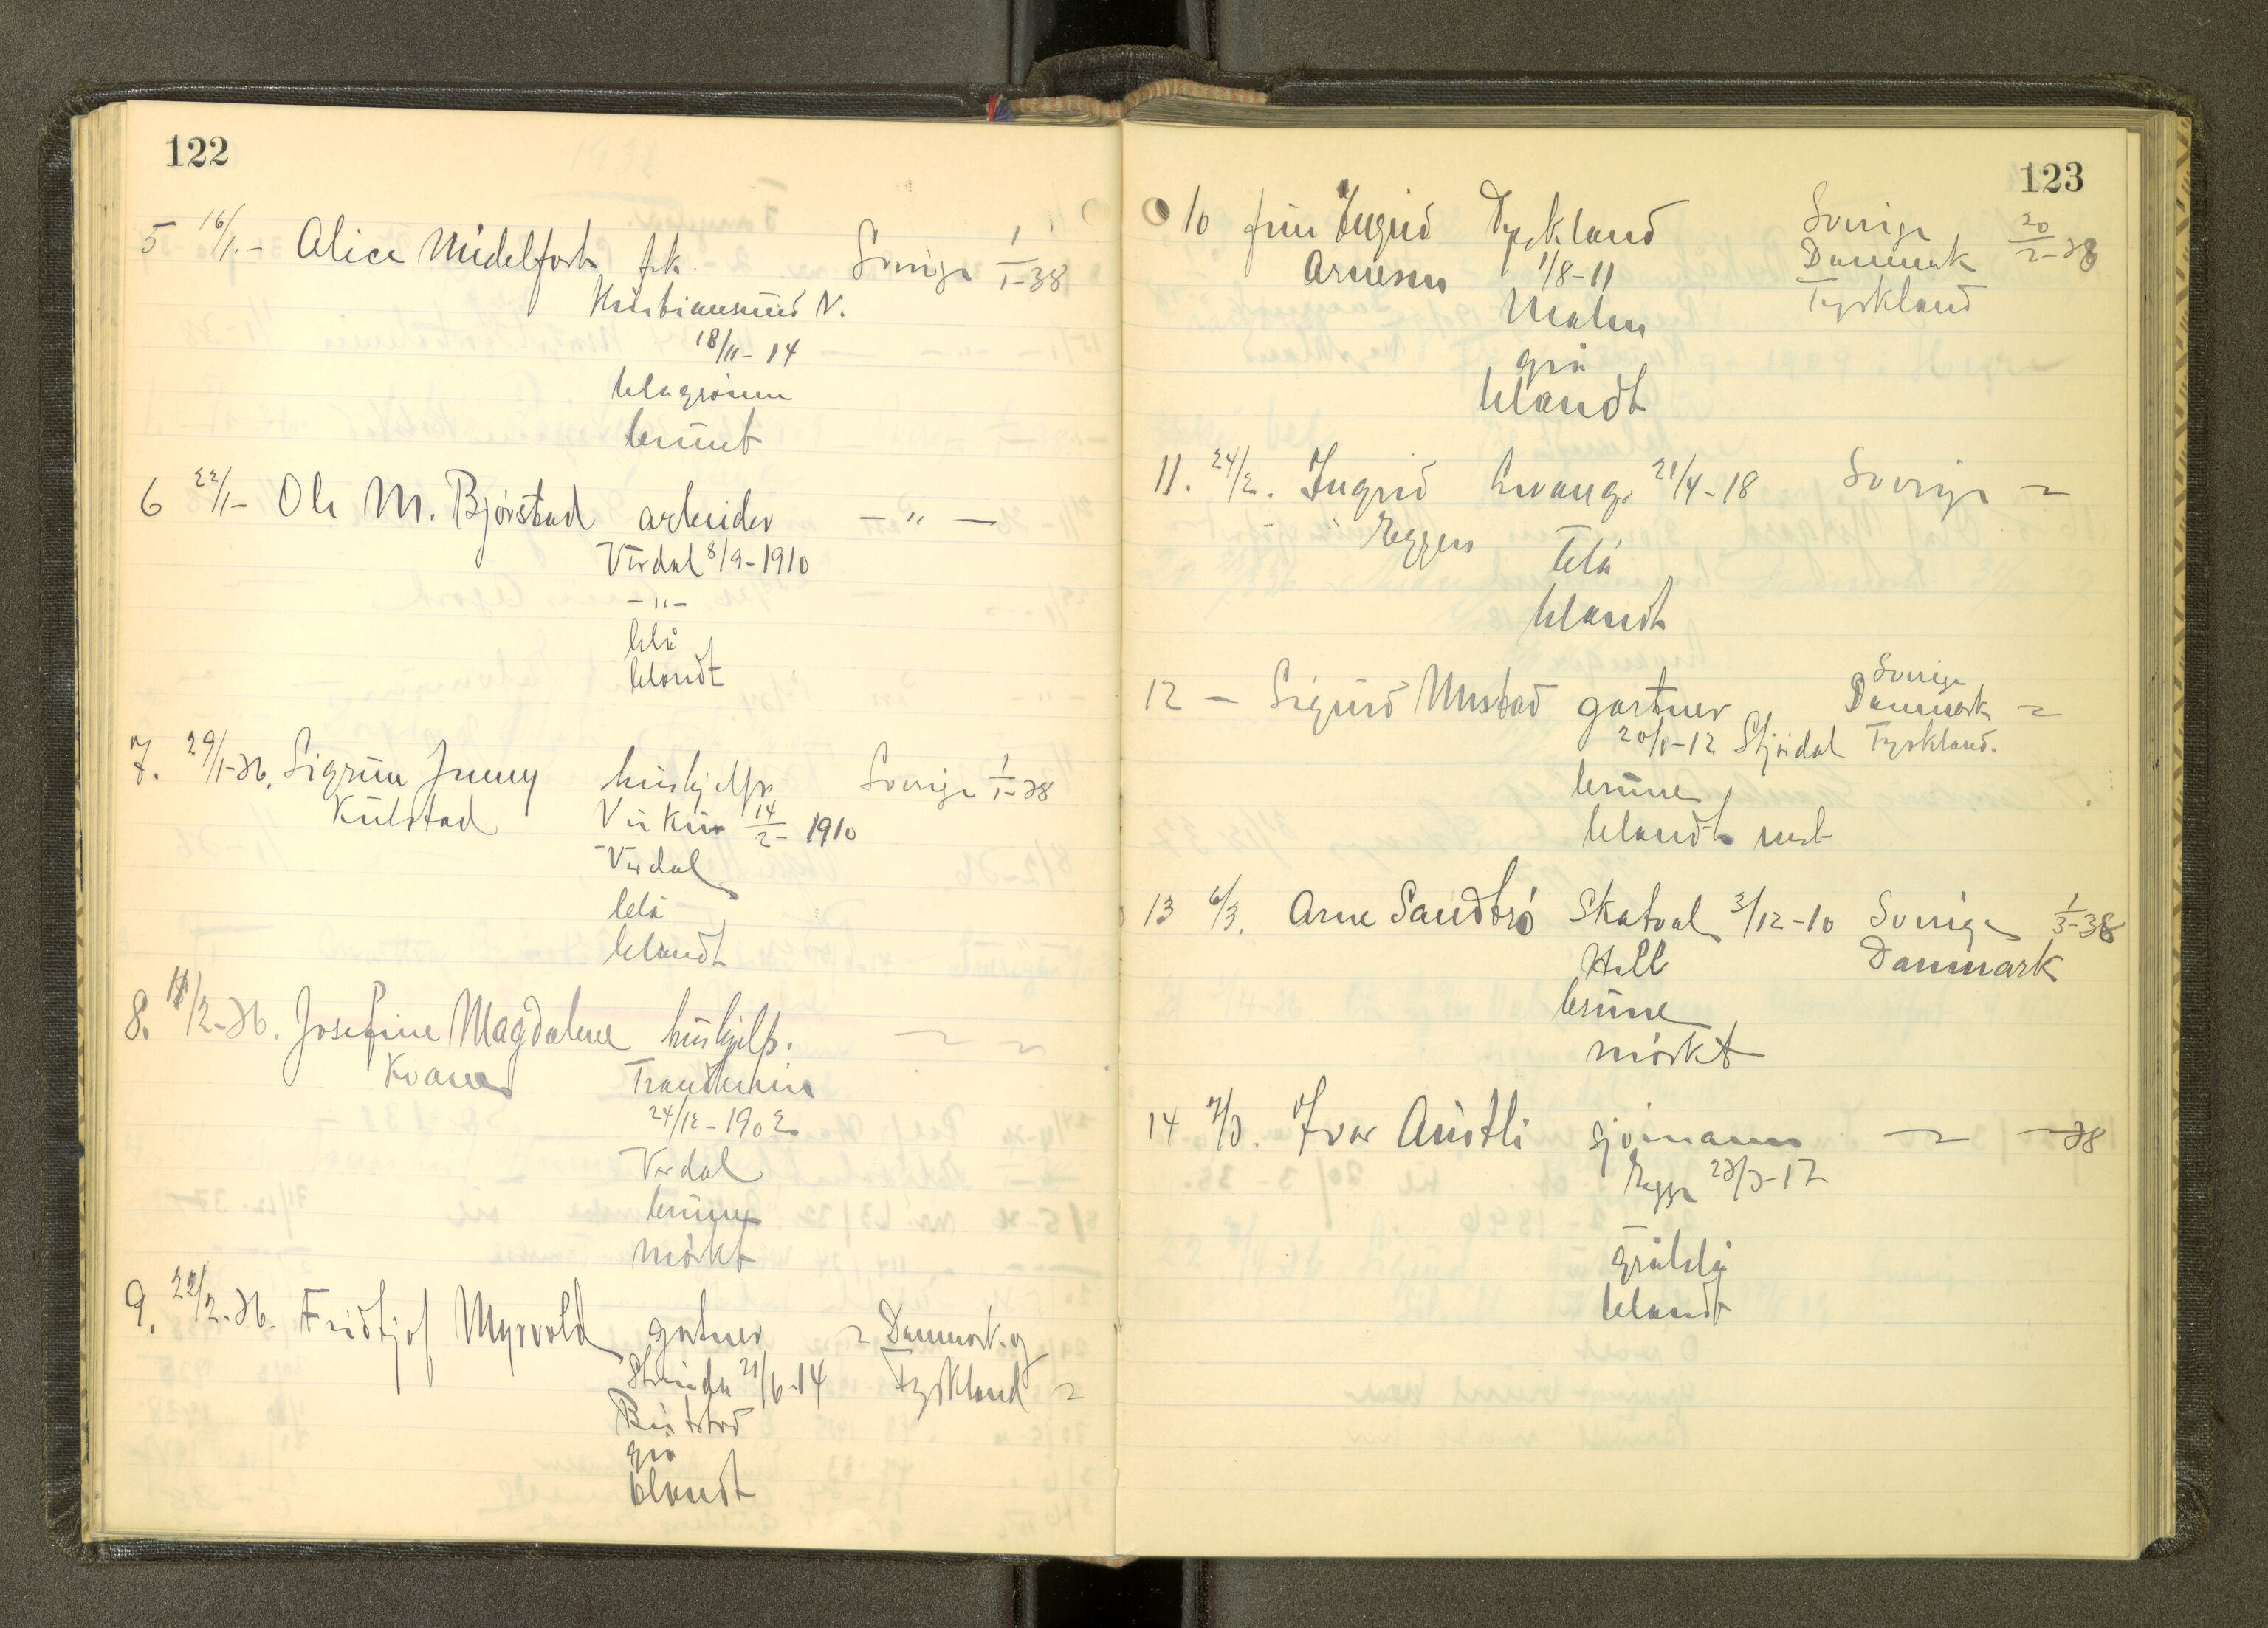 122
5 16/1.- Alice Midelfart frk. Sverige 1/1-38
Kristiansund N.
18/11-14
blagrønne
brunt
6 22/1- Ole M. Bjørstad arbeider - " -
Verdal 8/9-1910
- " -
blå
blondt
7. 29/1-36. Sigrun Jenny hushjelp Sverige 1/1-38
Kulstad 14/2-1910
Verdal
blå
blandt
8. 11/2-36. Josefine Magdalene hushjelp. ~ ~
Kvam Trondheim
24/12-1902
Verdal
brune
mørkt
9. 22/2-36. Fridtjof Myrvold gartner ~ Danmark og
Strinda 21/6-14 Tyskland ~
grå
blandt
123
10 fru Ingrid Tyskland Sverige 20/2-38
Arnesen 1/8-11 Danmark
Malm Tyskland
grå
blandt
11. 24/2. Ingrid Levanger 21/4-18 Sverige ~
Eggen
blå
blandt
12 - Sigurd Mustad gartner Sverige
Danmark ~
20/1-12 Stjørdal Tyskland.
brune
blandt
13 6/3. Arne Sandbrå Skatval 3/12-10 Sverige 1/3-38
Hell Danmark
brune
mørkt
14 7/3. Ivar Austli sjømann ~ ~38
Egge 23/3-17
gråblå
blandt